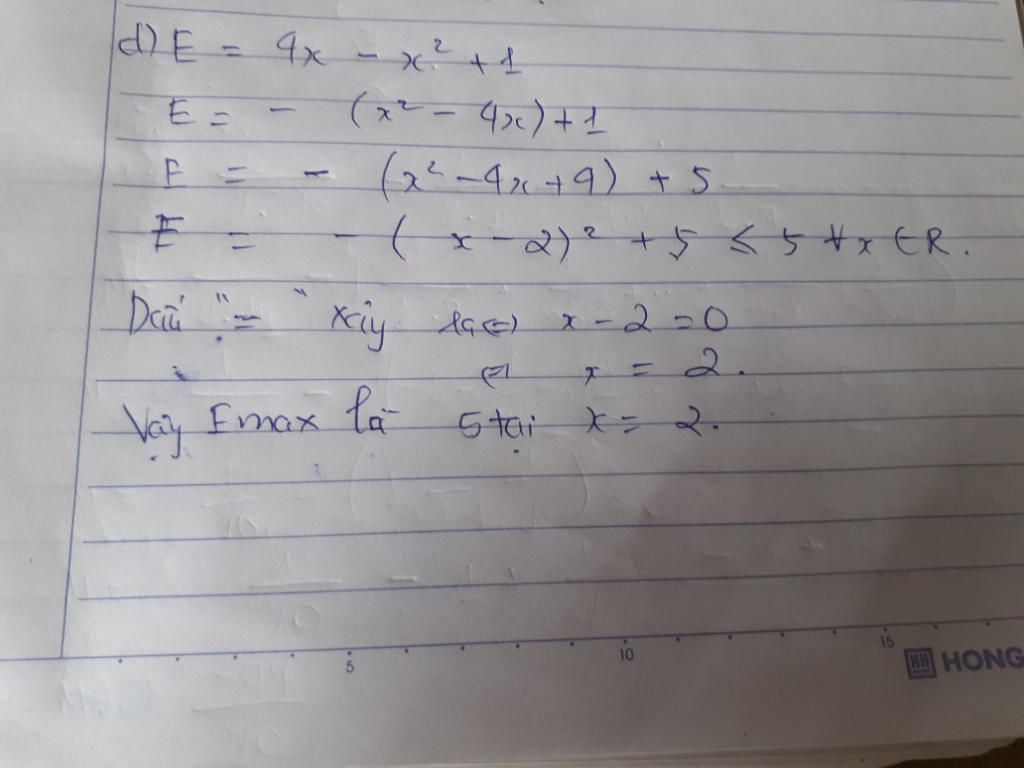 d) E = 4x - x² + 1
E = - (x² - 4x) + 1
E = - (x² - 4x + 4) + 5
E = - (x - 2)² + 5 ≤ 5 ∀x ∈ R.
Dấu "=" xảy ra ⇔ x - 2 = 0
⇔ x = 2.
Vậy Emax là 5 tại x = 2.
5 10 15
HH HONG